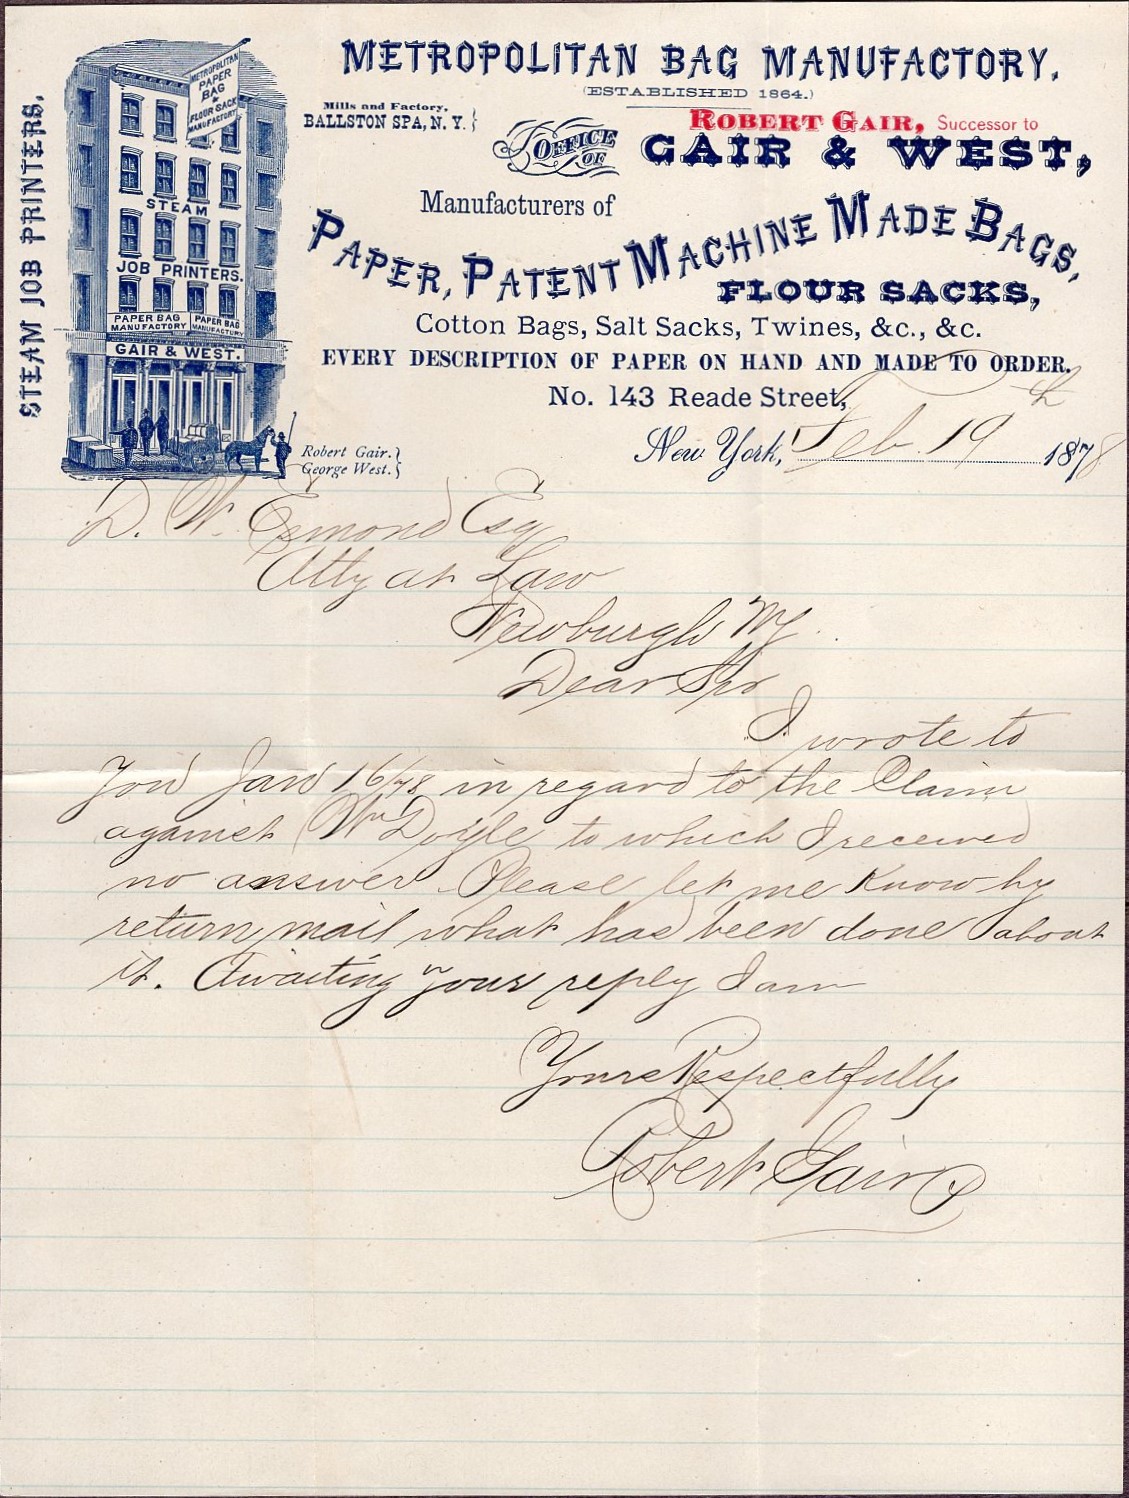 METROPOLITAN BAG MANUFACTORY.
(ESTABLISHED 1864.)
Mills and Factory,
BALLSTON SPA, N. Y.
ROBERT GAIR, Successor to
OFFICE OF
GAIR & WEST,
Manufacturers of
PAPER, PATENT MACHINE MADE BAGS,
FLOUR SACKS,
Cotton Bags, Salt Sacks, Twines, &c., &c.
EVERY DESCRIPTION OF PAPER ON HAND AND MADE TO ORDER.
No. 143 Reade Street,
New York, Feb. 19th 1878
STEAM JOB PRINTERS.
METROPOLITAN
PAPER
BAG
&
FLOUR SACK
MANUFACTORY
STEAM
JOB PRINTERS.
PAPER BAG
MANUFACTORY
PAPER BAG
MANUFACTORY
GAIR & WEST.
Robert Gair.
George West.
D. W. Esmond Esq
Atty at Law
Newburgh NY.
Dear Sir
I wrote to
you Jan 16/78 in regard to the Claim
against Wm Doyle to which I received
no answer. Please let me Know by
return mail what has been done about
it. Awaiting your reply I am
Yours Respectfully
Robert Gair